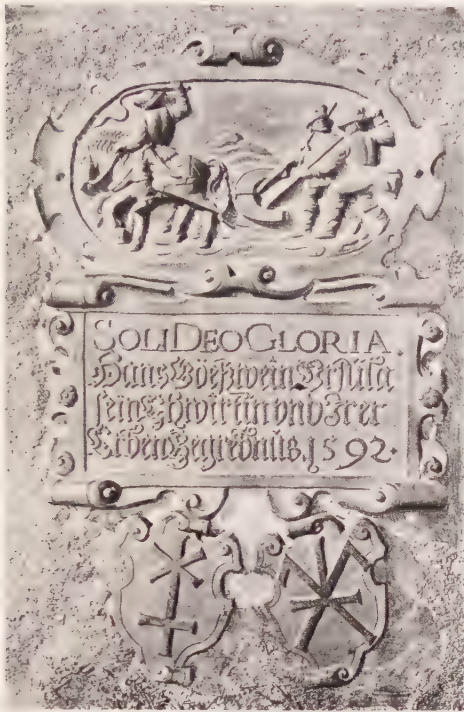 SOLI DEO GLORIA.
Hans Vrsula
sein Ehwirttin vnd Irer
Erben Begrebnus. 1592.